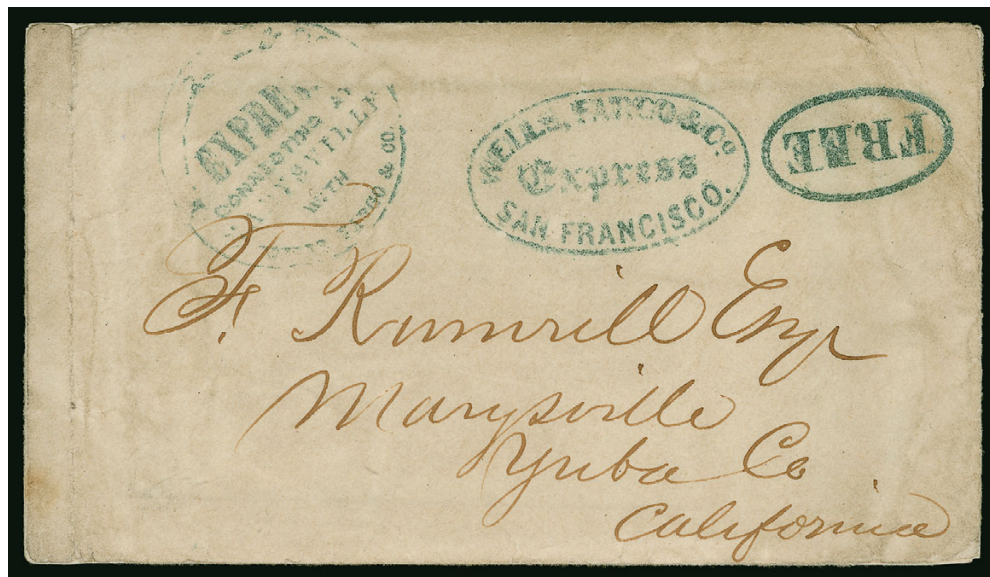 EXPRESS
CONNECTING AT
MARYSVILLE
WITH
WELLS FARGO & CO.
WELLS, FARGO & Co.
Express
SAN FRANCISCO.
FREE
F. Rumrill Esqr
Marysville
Yuba Co
California